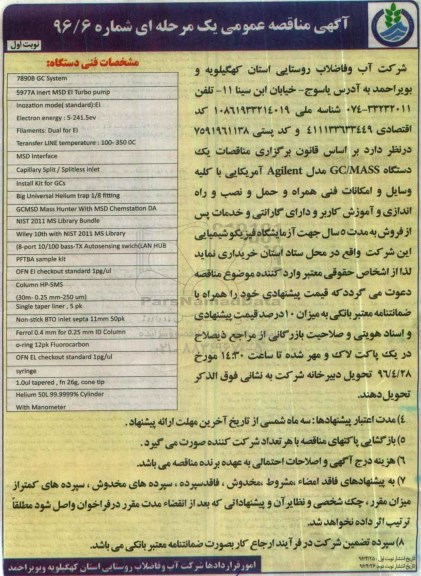 آگهی مناقصه عمومی یک مرحله ای شماره ۹۶/۶
نوبت اول
شرکت آب وفاضلاب روستایی استان کهگیلویه و
بویراحمد به آدرس یاسوج- خیابان ابن سینا ۱۱- تلفن
۰۷۴-۳۳۲۳۲۰۱۱ شناسه ملی ۱۰۸۶۱۹۳۳۲۱۴۰۱۹ کد
اقتصادی ۴۱۱۱۳۳۶۳۳۴۴۹ و کد پستی ۷۵۹۱۹۶۱۱۳۸
درنظر دارد بر اساس قانون برگزاری مناقصات یک
دستگاه GC/MASS مدل Agilent آمریکایی با کلیه
وسایل و امکانات فنی همراه و حمل و نصب و راه
اندازی و آموزش کاربر و دارای گارانتی و خدمات پس
از فروش به مدت ۵ سال جهت آزمایشگاه فیزیکوشیمیایی
این شرکت واقع در محل ستاد استان خریداری نماید
لذا از اشخاص حقوقی معتبر وارد کننده موضوع مناقصه
دعوت می گردد که قیمت پیشنهادی خود را همراه با
ضمانتنامه معتبر بانکی به میزان ۱۰درصد قیمت پیشنهادی
و اسناد هویتی و صلاحیت بازرگانی از مراجع ذیصلاح
در یک پاکت لاک و مهر شده تا ساعت ۱۴:۳۰ مورخ
۹۶/۴/۲۸ تحویل دبیرخانه شرکت به نشانی فوق الذکر
تحویل دهند.
مشخصات فنی دستگاه:
7890B GC System
5977A inert MSD EI Turbo pump
Inozation mode( standard):EI
Electron energy : 5-241.5ev
Filaments: Dual for EI
Teransfer LINE temperature : 100- 350 0C
MSD Interface
Capillary Split / Splitless inlet
Install Kit for GCs
Big Universal Helium trap 1/8 fitting
GCMSD Mass Hunter With MSD Chamstation DA
NIST 2011 MS Library Bundle
Wiley 10th with NIST 2011 MS Library
(8-port 10/100 bass-TX Autosensing swich)LAN HUB
PFTBA sample kit
OFN EI checkout standard 1pg/ul
Column HP-5MS
(30m- 0.25 mm-250 um)
Single taper liner , 5 pk
Non-stick BTO inlet septa 11mm 50pk
Ferrol 0.4 mm for 0.25 mm ID Column
o-ring 12pk Fluorocarbon
OFN EL checkout standard 1pg/ul
syringe
1.0ul tapered , fn 26g, cone tip
Helium 50L 99.9999% Cylinder
With Manometer
۴) مدت اعتبار پیشنهادها: سه ماه شمسی از تاریخ آخرین مهلت ارائه پیشنهاد.
۵) بازگشایی پاکتهای مناقصه با هر تعداد شرکت کننده صورت می گیرد.
۶) هزینه درج آگهی و اصلاحات احتمالی به عهده برنده مناقصه می باشد.
۷) به پیشنهادهای فاقد امضاء ،مشروط ،مخدوش ، فاقدسپرده ، سپرده های مخدوش ، سپرده های کمتراز
میزان مقرر ، چک شخصی و نظایر آن و پیشنهاداتی که بعد از انقضاء مدت مقرر در فراخوان واصل شود مطلقاً
ترتیب اثر داده نخواهد شد.
۸) سپرده تضمین شرکت در فرآیند ارجاع کار بصورت ضمانتنامه معتبر بانکی می باشد.
امور قراردادها شرکت آب وفاضلاب روستایی استان کهگیلویه وبویراحمد